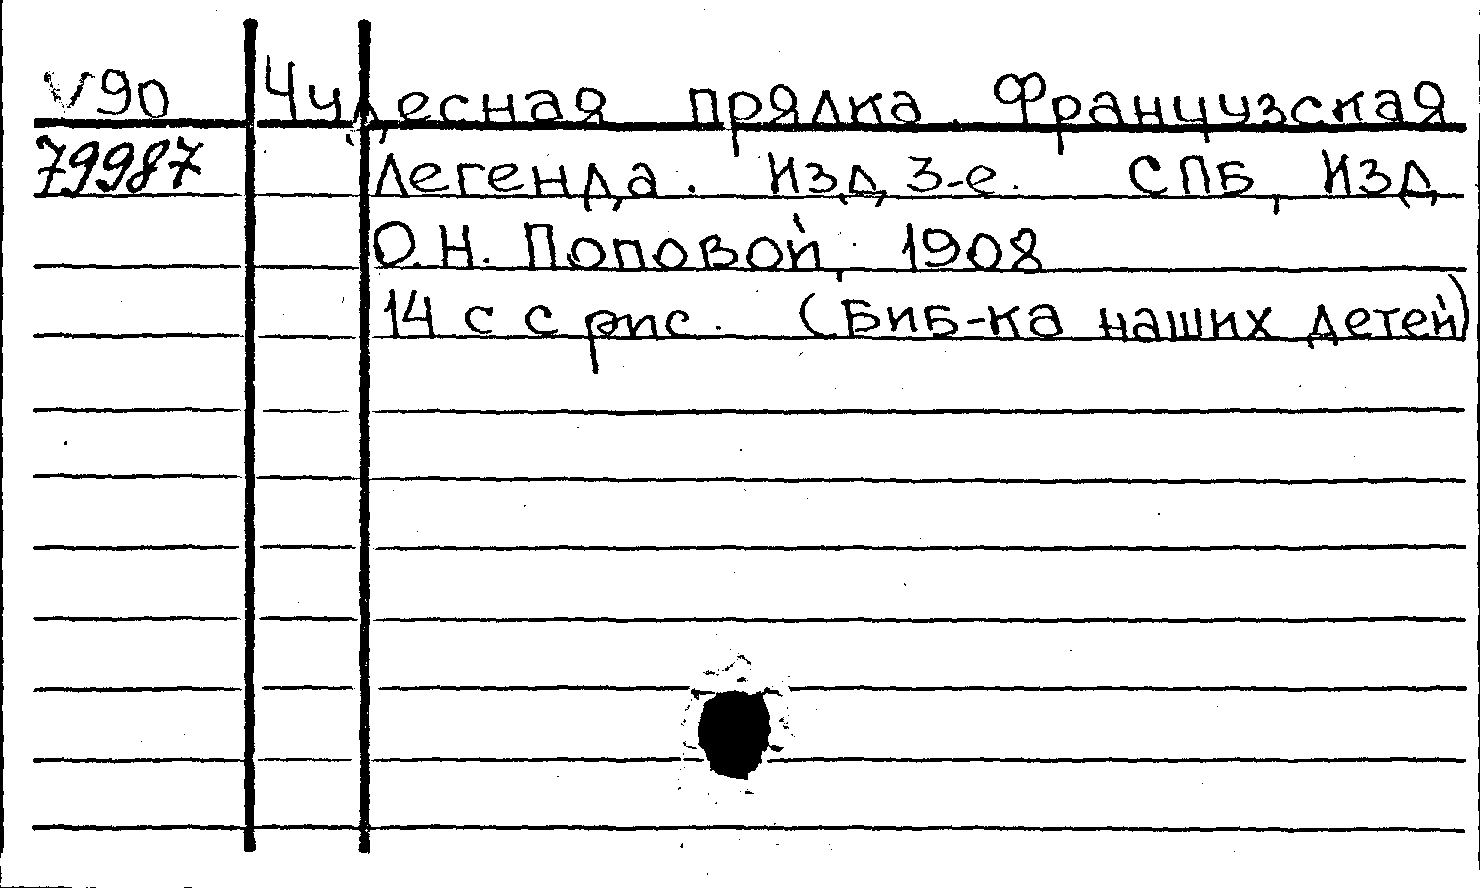 V90 Чудесная прялка. Французская
79987 легенда. Изд. 3-е. СПБ, Изд
О.Н. Поповой, 1908
14 с с рис. (Биб-ка наших детей)